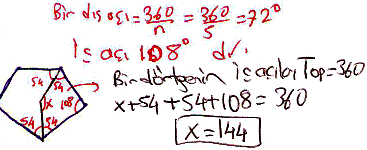 Bir dış açı = 360/n = 360/5 = 72°
İç açı 108° dir.
Bir dörtgenin iç açıları Top = 360
x + 54 + 54 + 108 = 360
x = 144
54
54
x
108
54
54